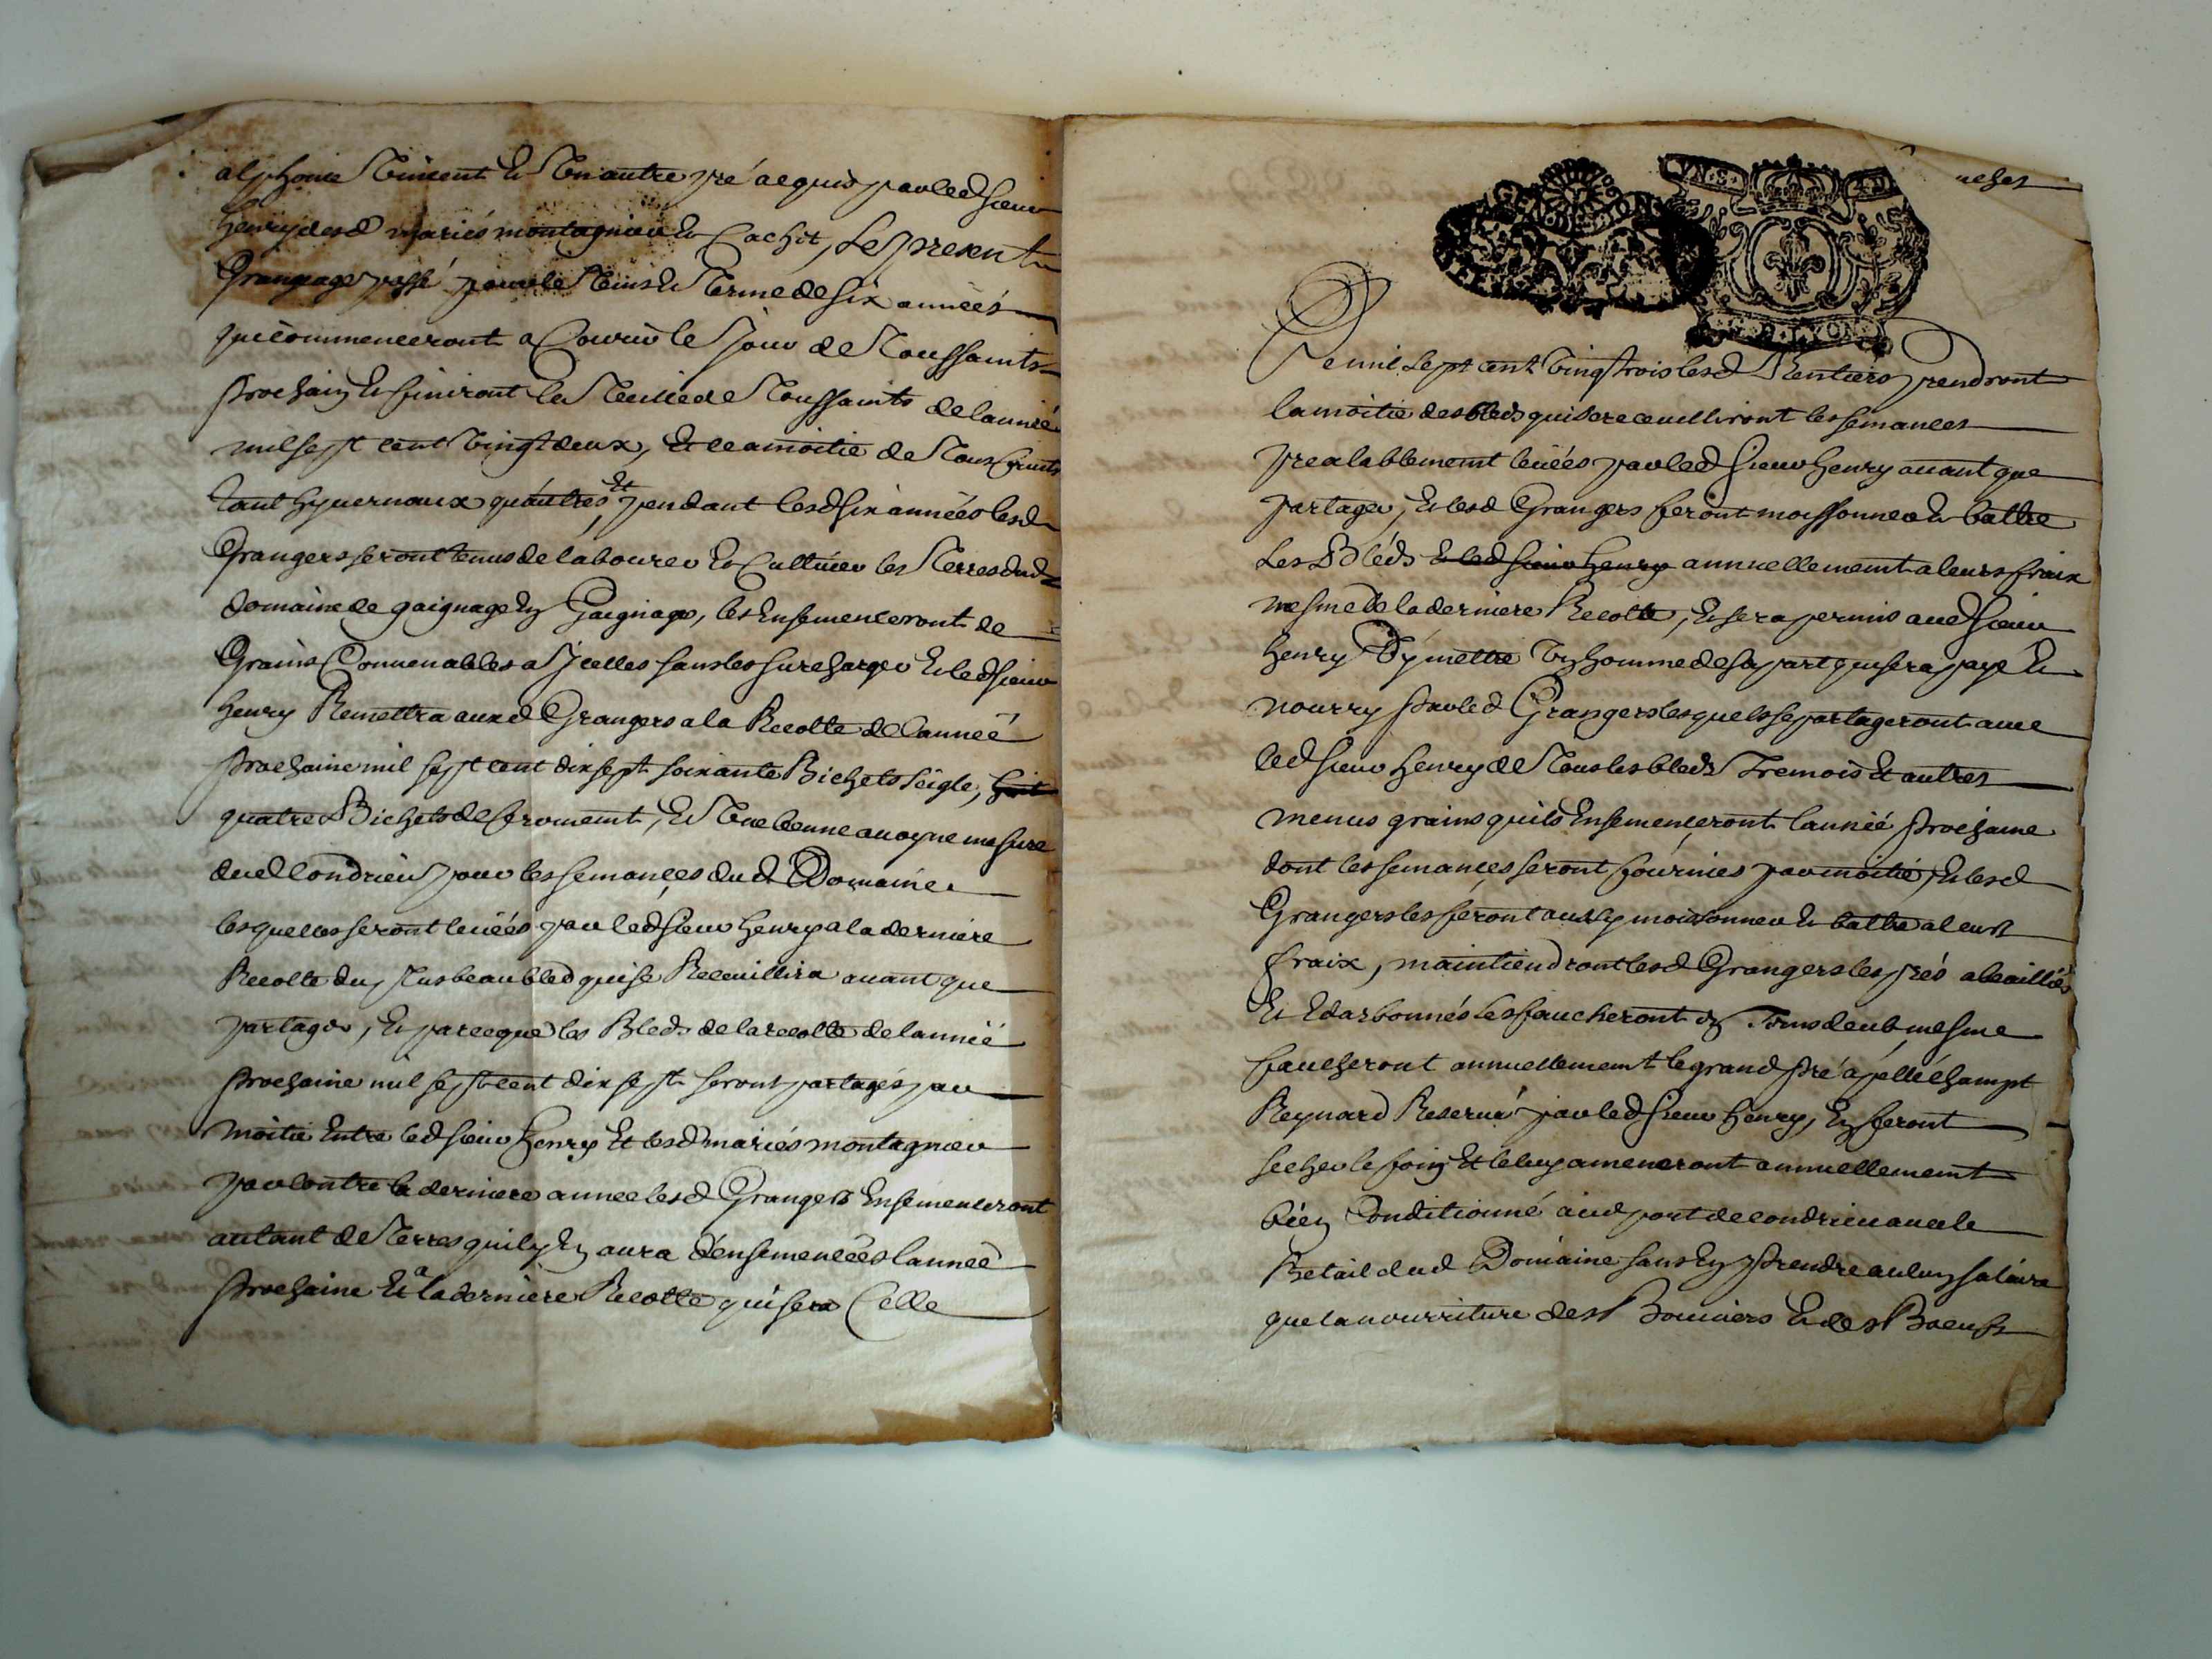 alphonse Vincent Et Un autre pré acquis par led sieur
henry desd mariés montagnieu Et Cachet, Le present
Grangage passé pour le Tems Et Terme de six années
qui commenceront a Courir le Jour de Toussaints
prochain Et finiront la Veille de Toussaints de lannée
mil sept cent Vingt deux, Et a la moitié de Tous fruits
tant hyvernaux quautres Et pendant lesd six années lesd
Grangers seront tenus de labourer Et Cultiver les Terres dud
Domaine de gaignage En Gaignage, les Ensemenceront de
Grains Convenables a Jcelles sans les surcharger Et led sieur
henry Remettra auxd Grangers a la Recolte de l'année
prochaine mil sept cent dix sept soixante Bichets seigle,
quatre Bichets de froment, Et Une benne avoyne mesure
dud Condrieu pour les semances dud Domaine
lesquelles seront levées par led sieur henry a la derniere
Recolte du plus beau bled qui se Recueillira avant que
partager, Et parceque les Bleds de la recolte de lannée
prochaine mil sept cent dix sept seront partagés par
moitié Entre led sieur henry Et lesd mariés montagnieu
par contre la derniere annee lesd Grangers Ensemenceront
autant de Terres quil y En aura d'ensemencées lannée
prochaine Et a la derniere Recolte qui sera Celle
GEN. D. LYON
De mil sept cent vingt trois lesd Rentiers prendront
la moitié des bleds qui se receuilliront les semances
prealablement levées par led sieur henry avant que
partager, Et lesd Grangers feront moissonner Et battre
Les Bléds Et led sieur henry annuellement a leurs fraix
mesme de la derniere Recolte, Et sera permis aud sieur
henry D'y mettre Un homme de sa part qui sera payé Et
nourry par led Grangers lesquels se partageront avec
led sieur henry de Tous les bleds Tremois Et autres
menus grains quils Ensemenceront lannée prochaine
dont les semances seront fournies par moitié, Et lesd
Grangers les feront aussy moissonner Et battre a leurs
fraix, maintiendront lesd Grangers les prés abeaillés
Et Edarbonnés Les faucheront En Tems deub mesme
faucheront annuellement le grand pré apellé champt
Reynard Reservé par led sieur henry, En feront
secher le foin Et le luy ameneront annuellement
bien Conditionné aud port de condrieu avec le
Betail dud Domaine sans En prendre aucun salaire
que la nourriture des Bouviers Et des Boeufs